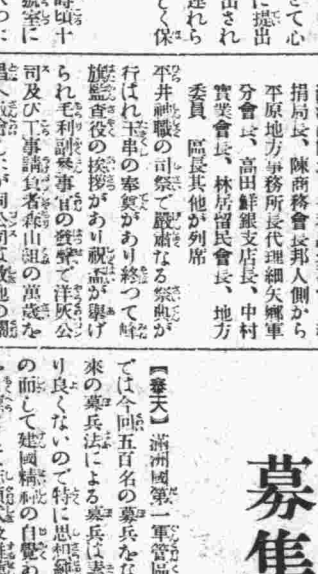 さて心
に提出
出され
連れら
てく保
時頃十
號室に
捐局長、陳商務會長邦人側から
平原地方事務所長代理細矢鄕軍
分會長、高田鮮銀支店長、中村
實業會長、林居留民會長、地方
委員、區長其他が列席
平井神職の司祭で嚴肅なる祭典が
行はれ玉串の奉奠があり終つて
旗監査役の挨拶があり祝盃が擧げ
られ毛利副參事官の發聲で洋灰公
司及び工事請負者森山組の萬歳を
募集
【奉天】滿洲國第一軍管區
では今回五百名の募兵をな
來の募兵法による募兵は素
り良くないので特に思想
の而して建國精神の自覺